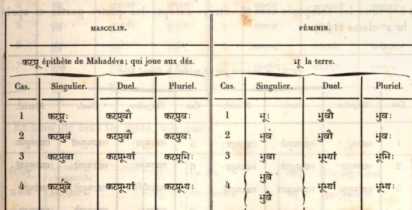 MASCULIN. FÉMININ.
कटप्रू épithète de Mahadéva; qui joue aux dés. भू la terre.
Cas. Singulier. Duel. Pluriel. Cas. Singulier. Duel. Pluriel.
1 कटप्रूः कटप्रुवौ कटप्रुवः 1 भूः भुवौ भुवः
2 कटप्रुवं कटप्रुवौ कटप्रुवः 2 भुवं भुवौ भुवः
3 कटप्रुवा कटप्रूभ्यां कटप्रूभिः 3 भुवा भूभ्यां भूभिः
भुवे
4 कटप्रुवे कटप्रूभ्यां कटप्रूभ्यः 4 भूभ्यां भूभ्यः
भुवै